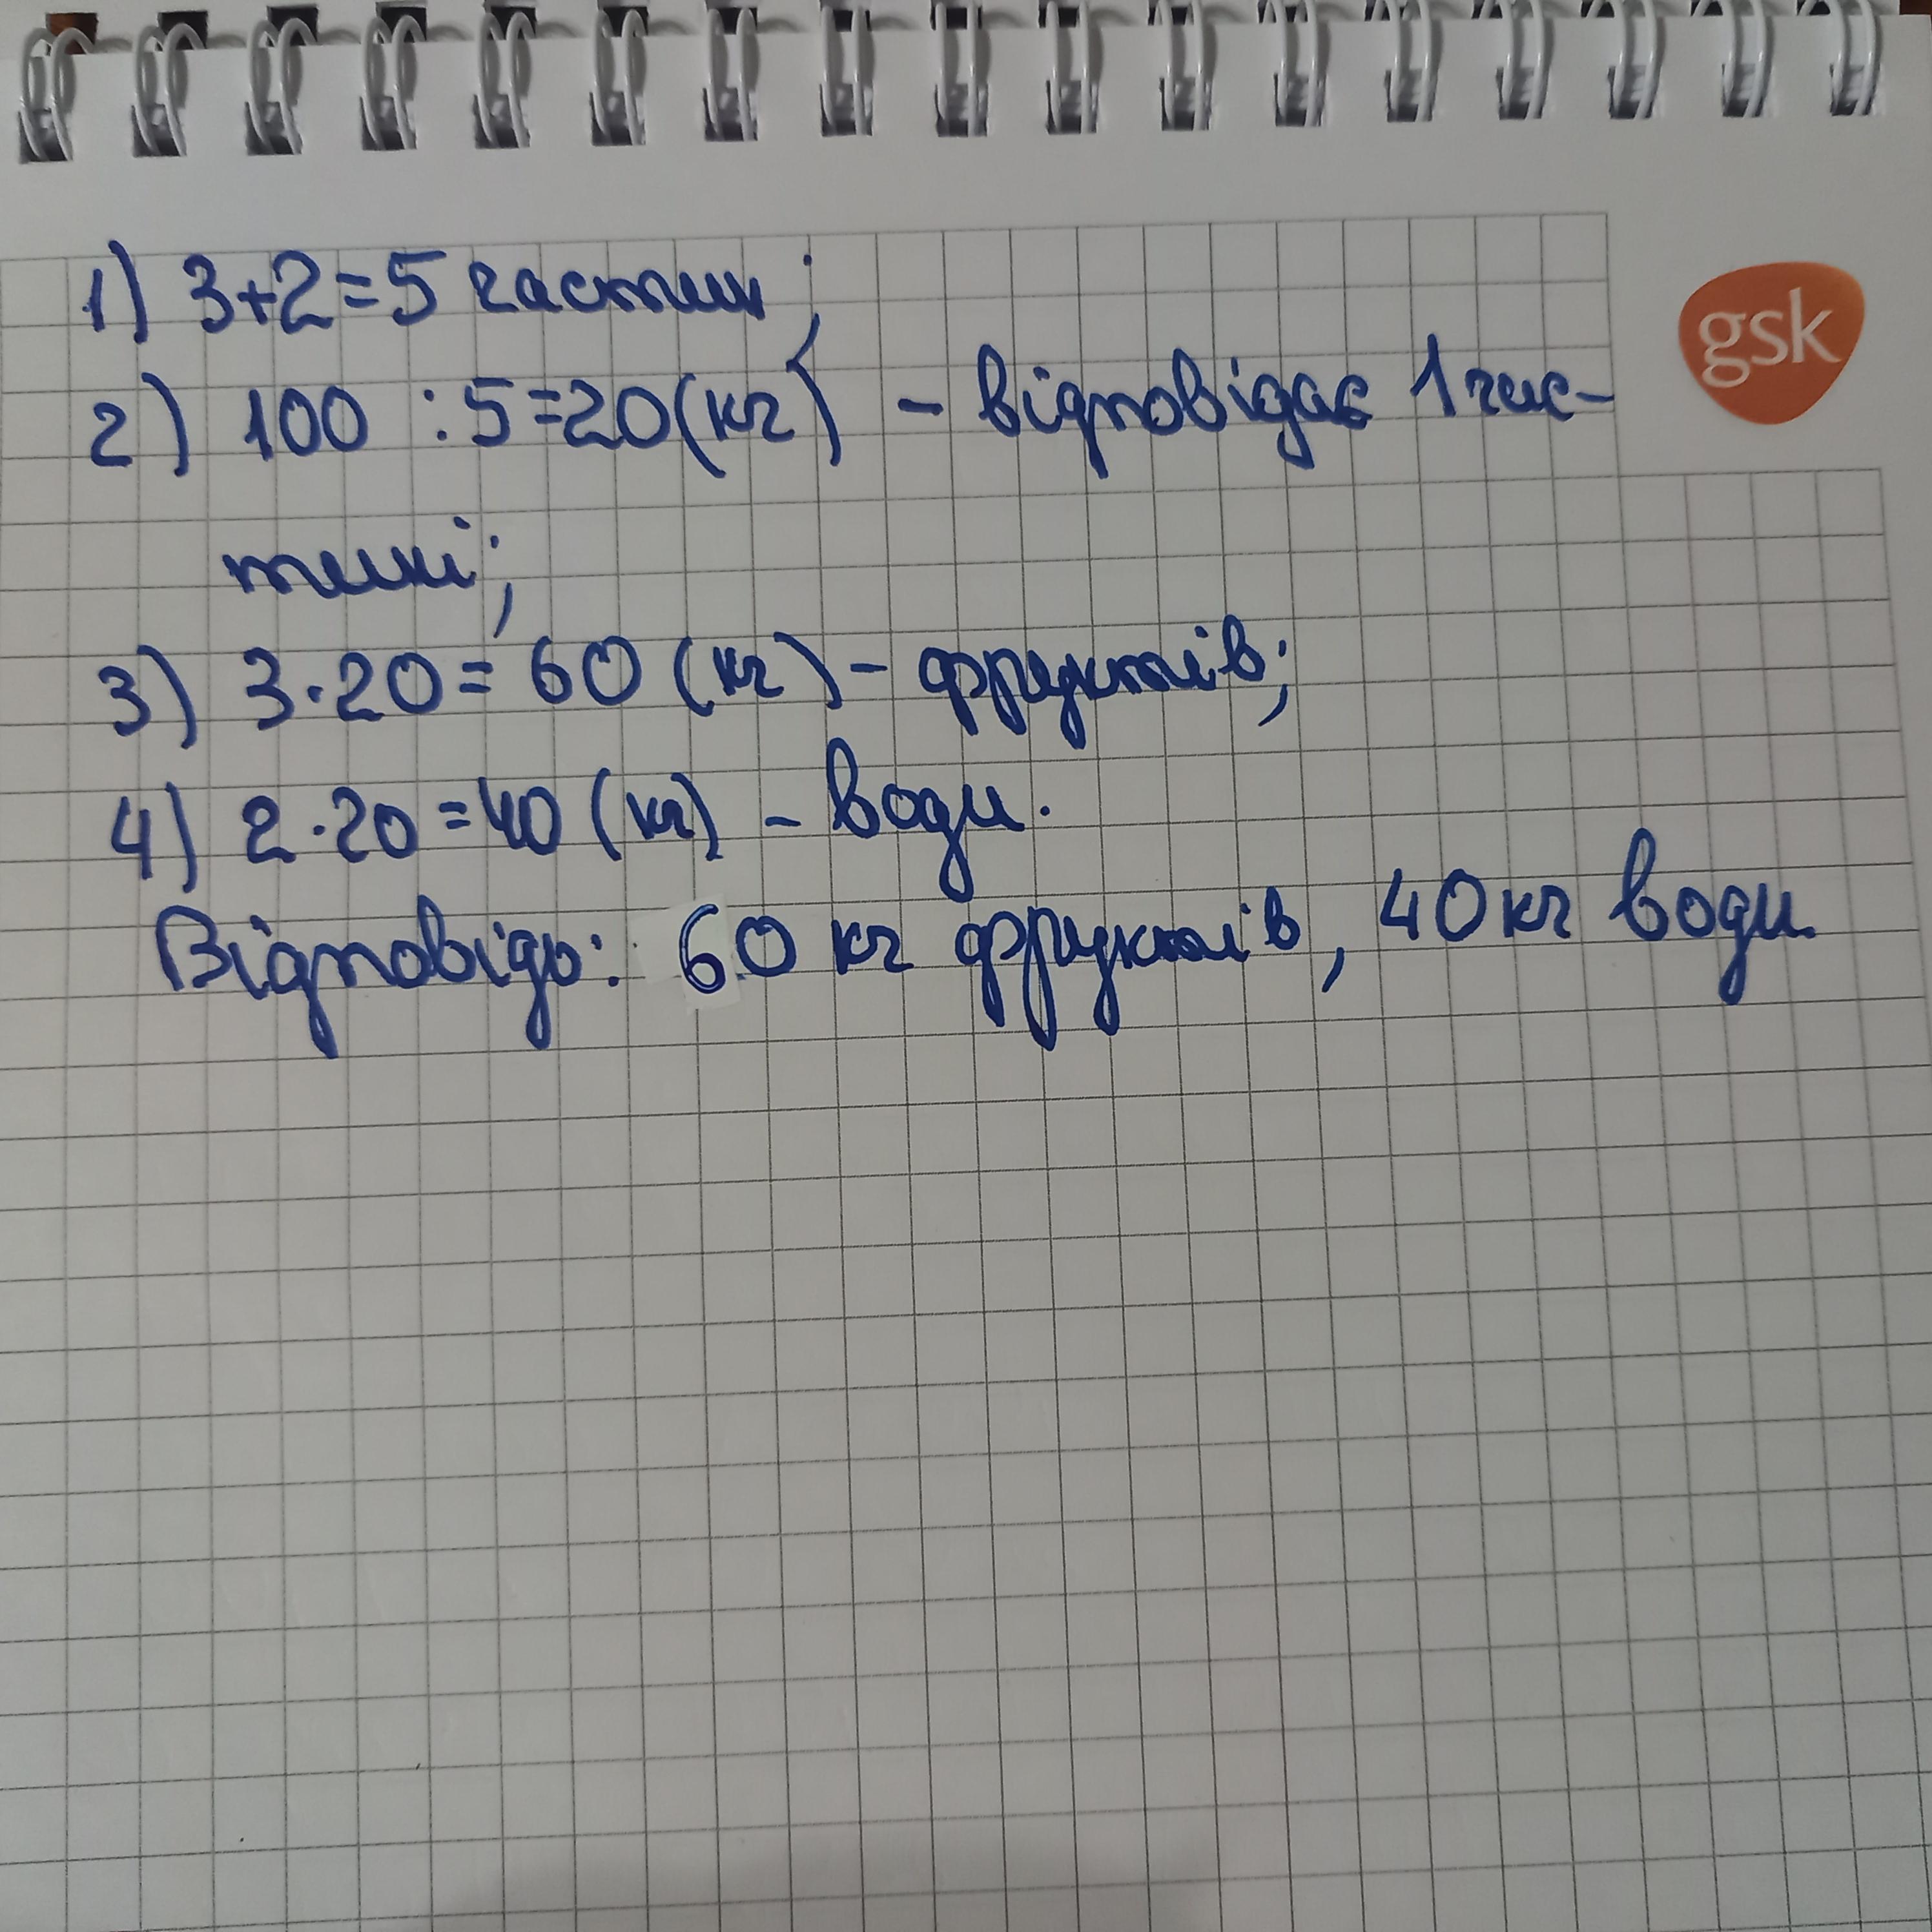 1) 3+2=5 частин;
gsk
2) 100 :5=20(кг) - відповідає 1 час-
тині;
3) 3·20= 60 (кг) - фруктів;
4) 2·20=40 (кг) - води.
Відповідь: 60 кг фруктів, 40 кг води